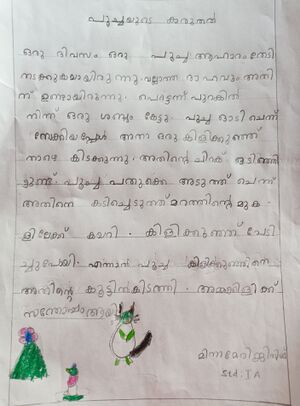 പൂച്ചയുടെ കരുതൽ
ഒരു ദിവസം ഒരു പൂച്ച ആഹാരം തേടി
നടക്കുകയായിരുന്നു. വല്ലാത്ത ദാഹവും അതി
ന് ഉണ്ടായിരുന്നു. പെട്ടന്ന് പുറകിൽ
നിന്ന് ഒരു ശബ്ദം കേട്ടു. പൂച്ച ഓടി ചെന്ന്
നോക്കിയപ്പോൾ അതാ ഒരു കിളിക്കുഞ്ഞ്
താഴെ കിടക്കുന്നു. അതിന്റെ ചിറക് ഒടിഞ്ഞി
ട്ടുണ്ട് പൂച്ച പതുക്കെ അടുത്ത് ചെന്ന്
അതിനെ കടിച്ചെടുത്ത് മരത്തിന്റെ മുക
ളിലേക്ക് കയറി. കിളിക്കുഞ്ഞ് പേടി
ച്ചുപോയി. എന്നാൽ പൂച്ച കിളിക്കുഞ്ഞിനെ
അതിന്റെ കൂട്ടിൽ കിടത്തി. അമ്മക്കിളിക്ക്
സന്തോഷം ആയി
Std: I A